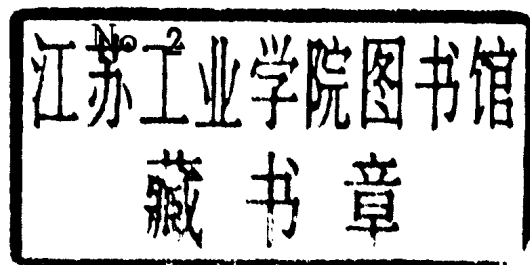 No 2
江苏工业学院图书馆
藏书章